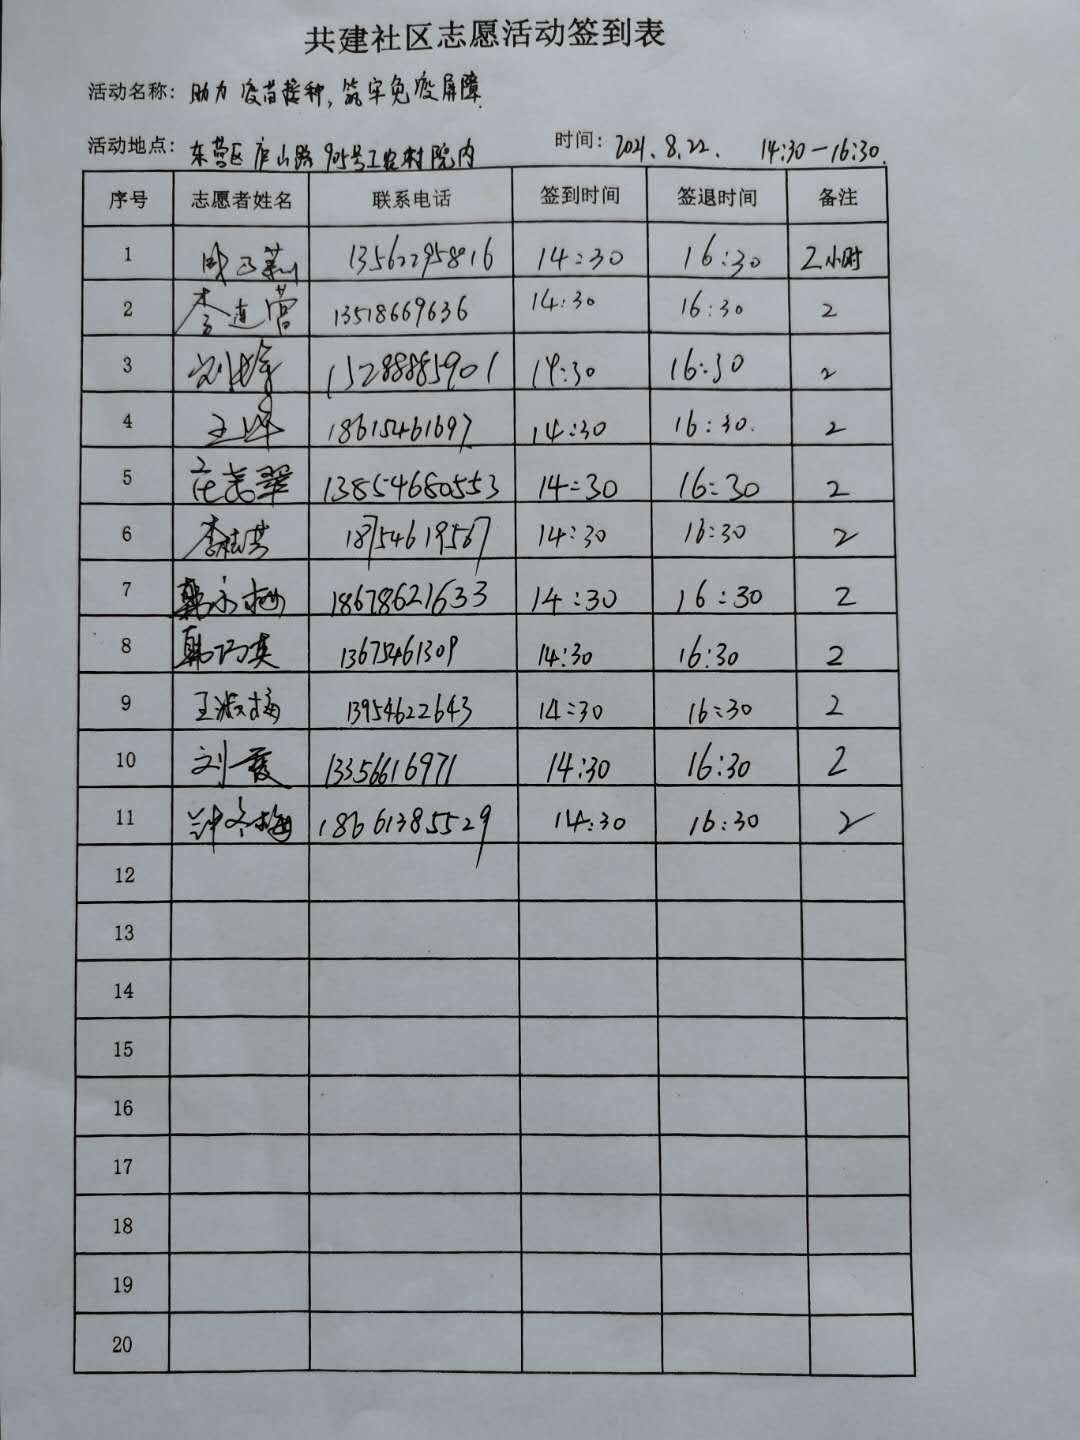 共建社区志愿活动签到表
活动名称：助力疫苗接种，筑牢免疫屏障
活动地点：东营区庐山路905号工农村院内 时间：2021.8.22. 14:30—16:30.
序号 志愿者姓名 联系电话 签到时间 签退时间 备注
1 13562295816 14:30 16:30 2小时
2 李连营 13518669636 14:30 16:30 2
3 15288885901 14:30 16:30 2
4 王峰 18615461697 14:30 16:30. 2
5 13854680553 14:30 16:30 2
6 李桂芬 18754619567 14:30 16:30 2
7 韩永梅 18678621633 14:30 16:30 2
8 韩巧英 13675461309 14:30 16:30 2
9 王淑梅 13954622643 14:30 16:30 2
10 刘霞 13356616971 14:30 16:30 2
11 钟冬梅 18661385529 14:30 16:30 2
12
13
14
15
16
17
18
19
20